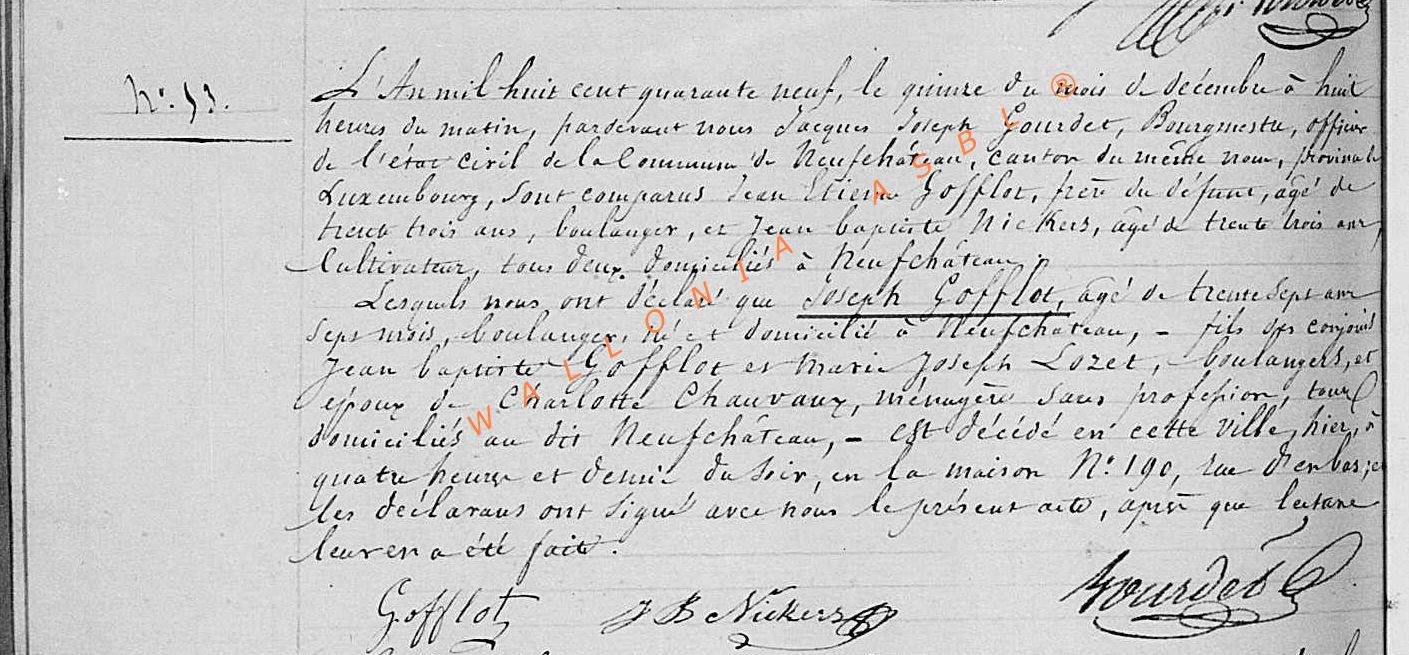 N° 53.
L'An mil huit cent quarante neuf, le quinze du mois de décembre à huit
heures du matin, pardevant nous Jacques Joseph Gourdet, Bourgmestre, officier
de l'état civil de la Commune de Neufchâteau, canton du même nom, province de
Luxembourg, sont comparus Jean Etienne Gofflot, frère du défunt, agé de
trente trois ans, boulanger, et Jean baptiste Nickers, agé de trente trois ans,
Cultivateur, tous deux domiciliés à Neufchâteau.
Lesquels nous ont déclaré que Joseph Gofflot, agé de trente sept ans
sept mois, boulanger, né et domicilié à Neufchateau, – fils des conjoints
Jean baptiste Gofflot et Marie Joseph Lozet, boulangers, et
époux de Charlotte Chauvaux, ménagère sans profession, tous
domiciliés au dit Neufchâteau, – est décédé en cette ville, hier, à
quatre heures et demie du soir, en la maison N° 190, rue d'en bas; et
les déclarans ont signé avec nous le présent acte, après que lecture
leur en a été faite.
Gofflot J B Nickers Gourdet
WALLONIA ASBL ®